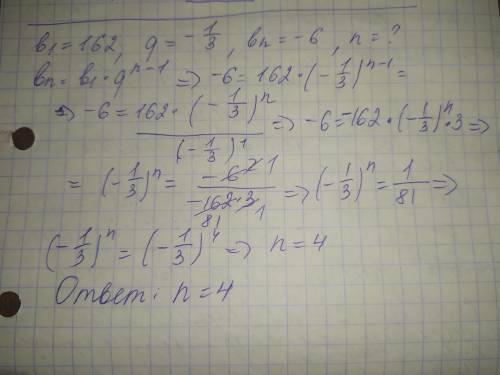 b₁ = 162, q = -1/3, bₙ = -6, n = ?
bₙ = b₁ · qⁿ⁻¹ => -6 = 162 · (-1/3)ⁿ⁻¹ =
=> -6 = 162 · (-1/3)ⁿ / (-1/3)¹ => -6 = -162 · (-1/3)ⁿ · 3 =>
= (-1/3)ⁿ = -6 1 / -162 · 3 81 1 => (-1/3)ⁿ = 1/81 =>
(-1/3)ⁿ = (-1/3)⁴ => n = 4
Ответ: n = 4